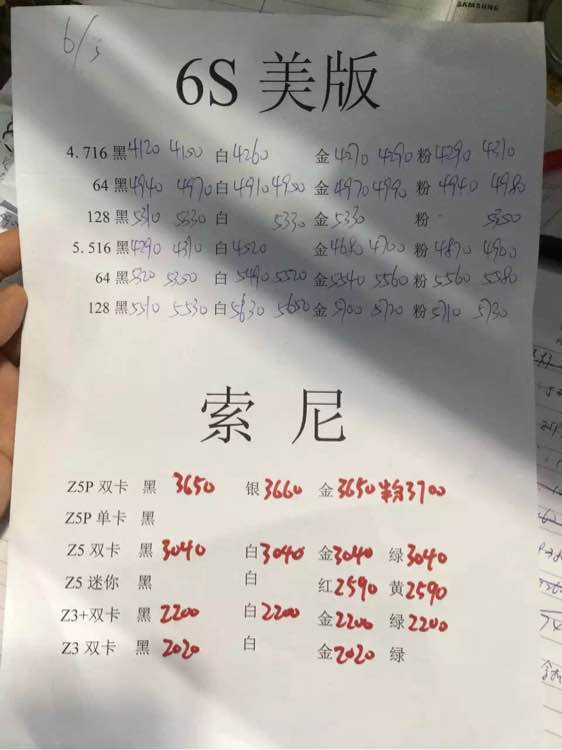 6/3
SAMSUNG
6S 美版
4.7 16 黑 4120 4150 白 4260 金 4270 4290 粉 4290 4310
64 黑 4940 4970 白 4910 4950 金 4970 4990 粉 4940 4980
128 黑 5310 5330 白 5330 金 5330 粉 5350
5.5 16 黑 4290 4310 白 4520 金 4680 4700 粉 4870 4900
64 黑 5320 5350 白 5490 5520 金 5540 5560 粉 5560 5580
128 黑 5510 5530 白 5630 5650 金 5700 5720 粉 5710 5730
索 尼
Z5P 双卡 黑 3650 银 3660 金 3650 粉 3700
Z5P 单卡 黑
Z5 双卡 黑 3040 白 3040 金 3040 绿 3040
Z5 迷你 黑 白 红 2590 黄 2590
Z3+双卡 黑 2200 白 2200 金 2200 绿 2200
Z3 双卡 黑 2020 白 金 2020 绿